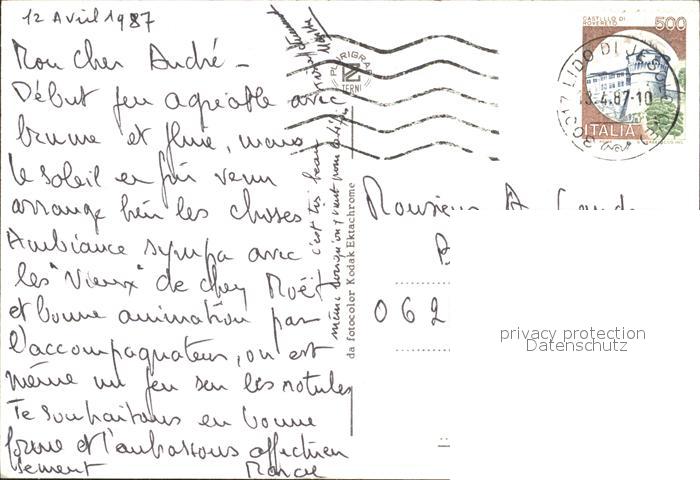 12 Avril 1987
Mon cher André -
Début peu agréable avec
brume et pluie, mais
le soleil en fin venu
arrange bien les choses
Ambiance sympa avec
les "Vieux" de chez Moët
et bonne animation par
l'accompagnateur, on est
même un peu sur les rotules
Te souhaitons en bonne
forme et t'embrassons affectueu
sement
c'est très beau
même lorsqu'on y vient pour
da fotocolor Kodak Ektachrome
PLURIGRAF
TERNI
CASTELLO DI
ROVERETO
500
ITALIA
LIDO DI JESOLO
13.4.87-10
Monsieur A.
062
privacy protection
Datenschutz